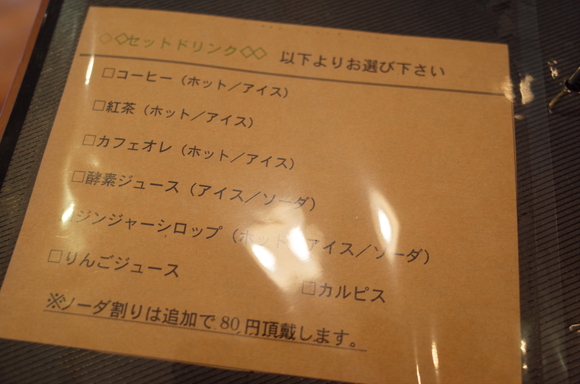 ◇◇セットドリンク◇◇ 以下よりお選び下さい
□コーヒー（ホット／アイス）
□紅茶（ホット／アイス）
□カフェオレ（ホット／アイス）
□酵素ジュース（アイス／ソーダ）
□ジンジャーシロップ（ホット／アイス／ソーダ）
□りんごジュース □カルピス
※ソーダ割りは追加で80円頂戴します。